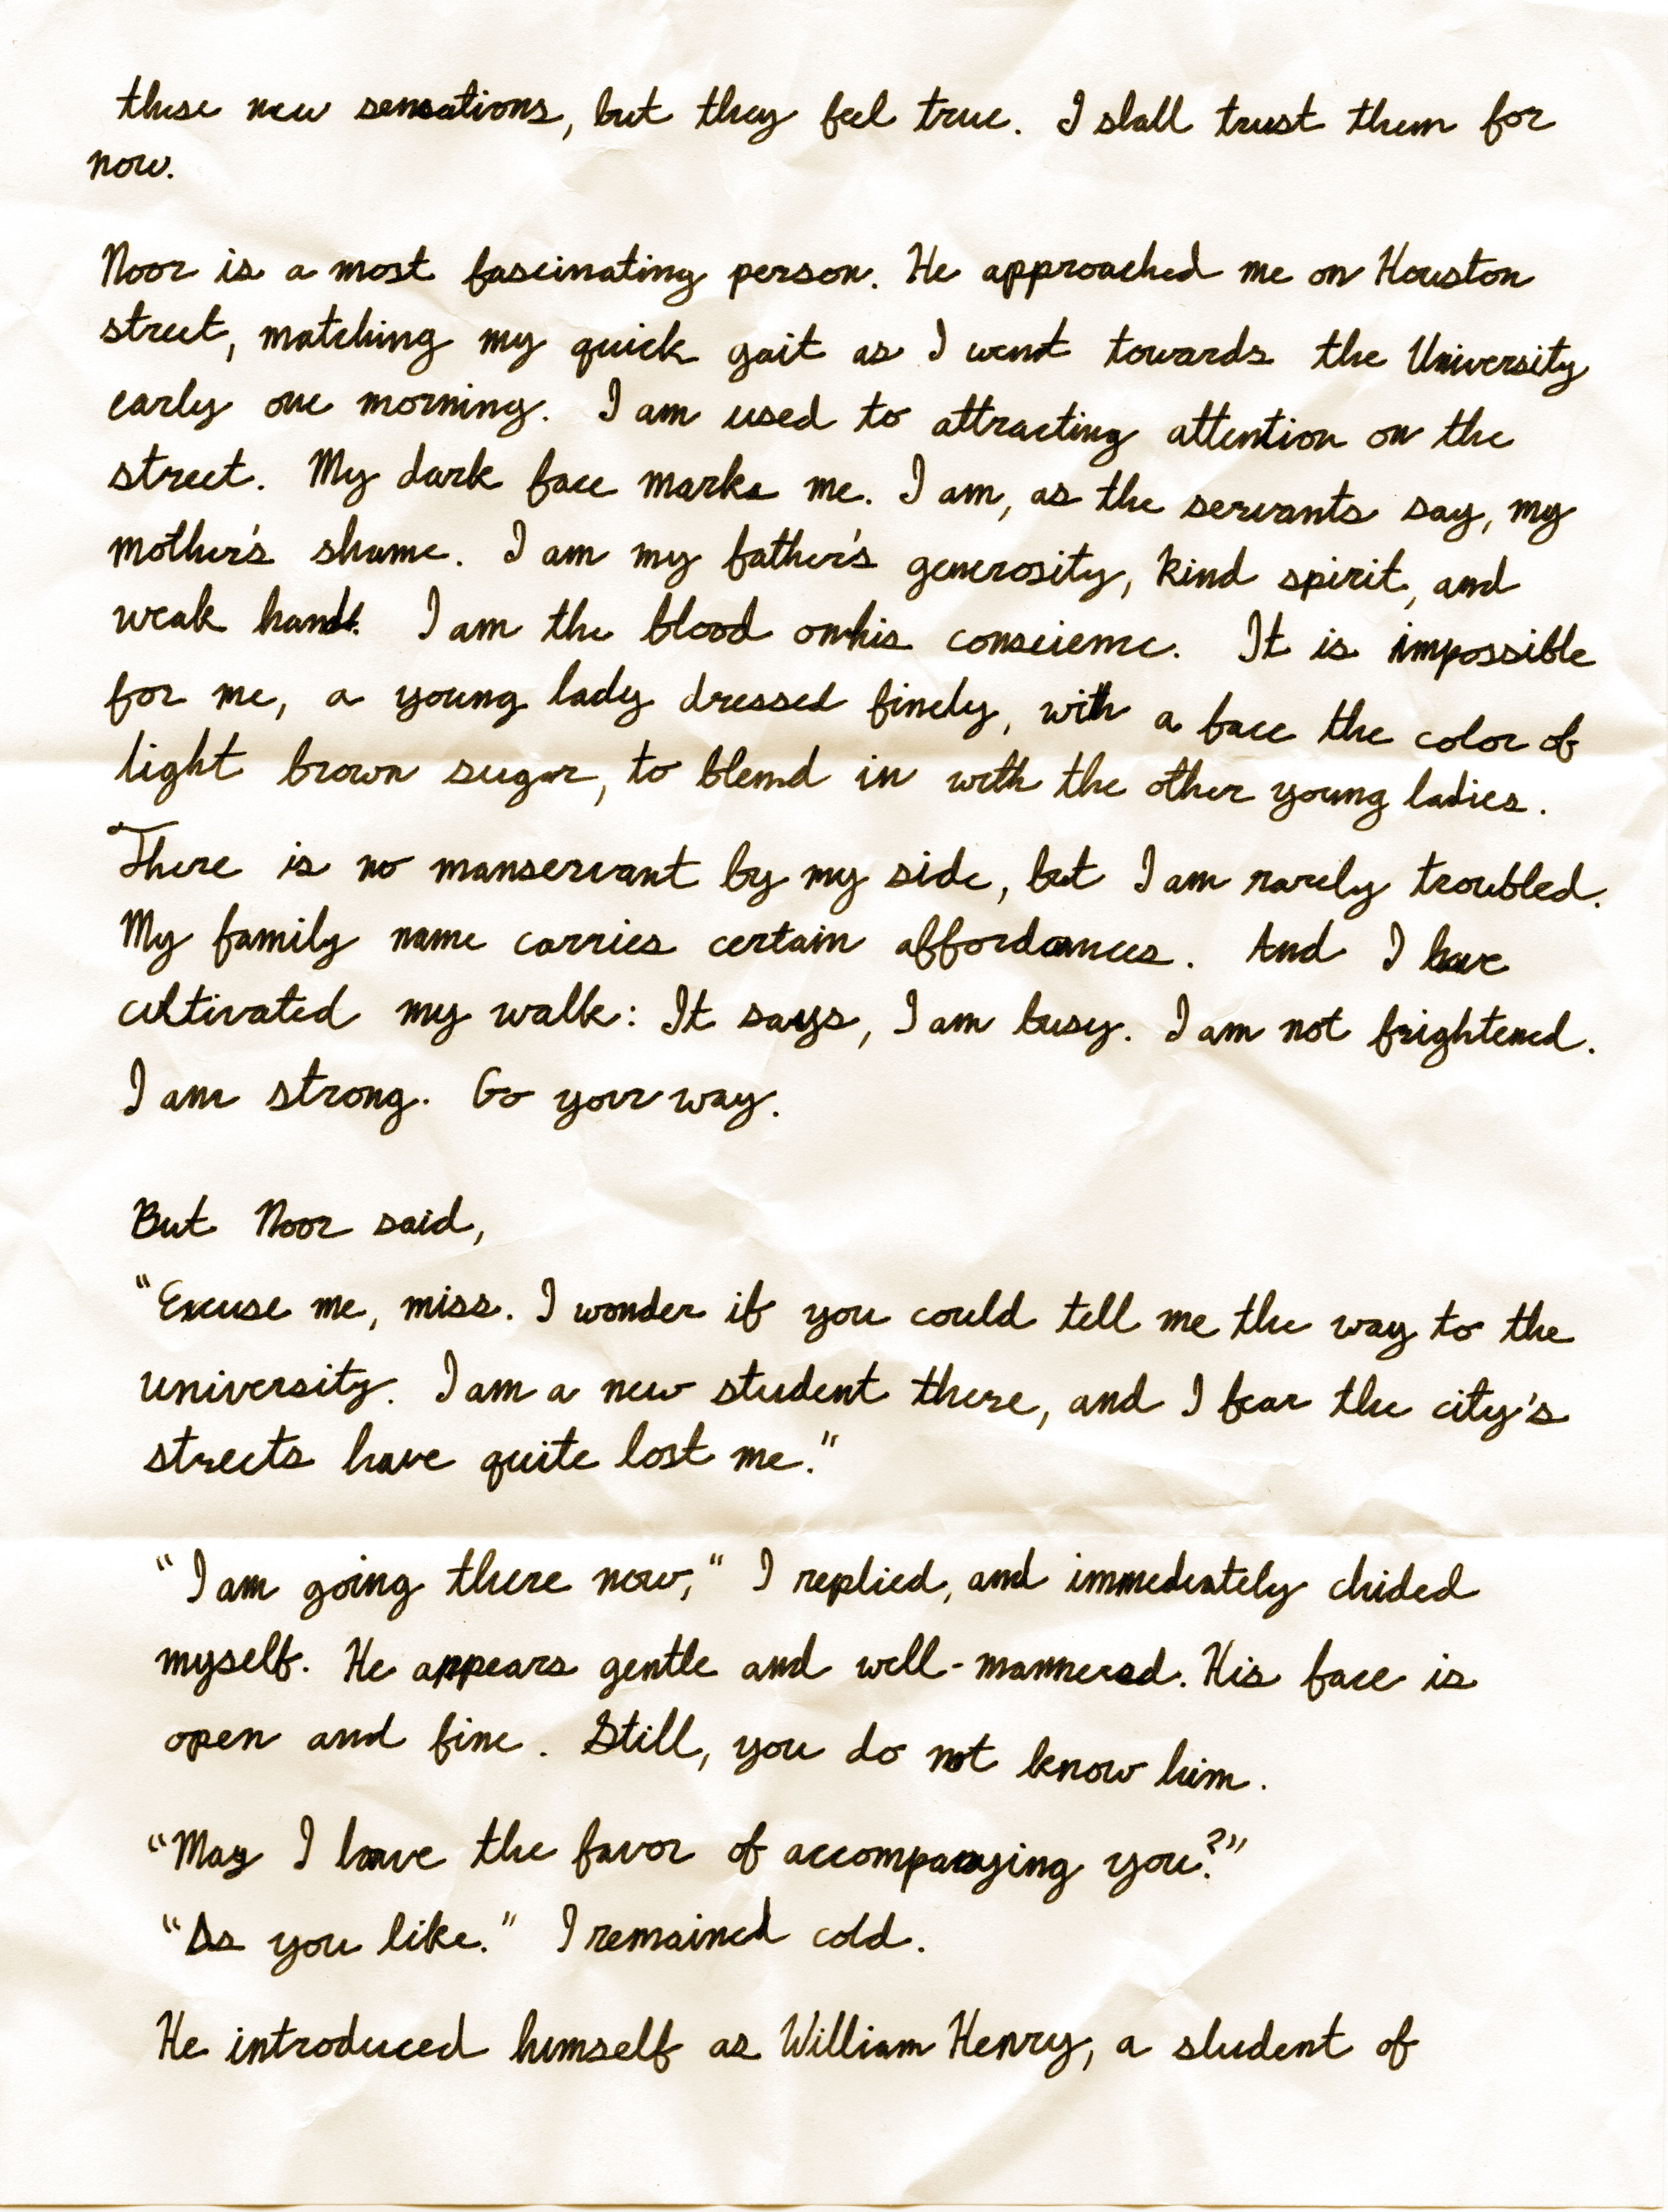 these new sensations, but they feel true. I shall trust them for
now.
Noor is a most fascinating person. He approached me on Houston
street, matching my quick gait as I went towards the University
early one morning. I am used to attracting attention on the
street. My dark face marks me. I am, as the servants say, my
mother's shame. I am my father's generosity, kind spirit, and
weak hands. I am the blood on his conscience. It is impossible
for me, a young lady dressed finely, with a face the color of
light brown sugar, to blend in with the other young ladies.
There is no manservant by my side, but I am rarely troubled.
My family name carries certain affordances. And I have
cultivated my walk: It says, I am busy. I am not frightened.
I am strong. Go your way.
But Noor said,
"Excuse me, miss. I wonder if you could tell me the way to the
university. I am a new student there, and I fear the city's
streets have quite lost me."
"I am going there now," I replied, and immediately chided
myself. He appears gentle and well-mannered. His face is
open and fine. Still, you do not know him.
"May I have the favor of accompanying you?"
"As you like." I remained cold.
He introduced himself as William Henry, a student of